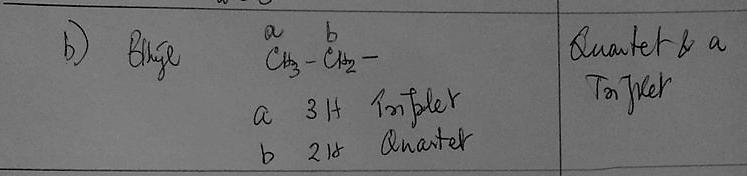 a b
b) Ethyl CH3 - CH2 -
a 3H Triplet
b 2H Quartet
Quartet & a
Triplet